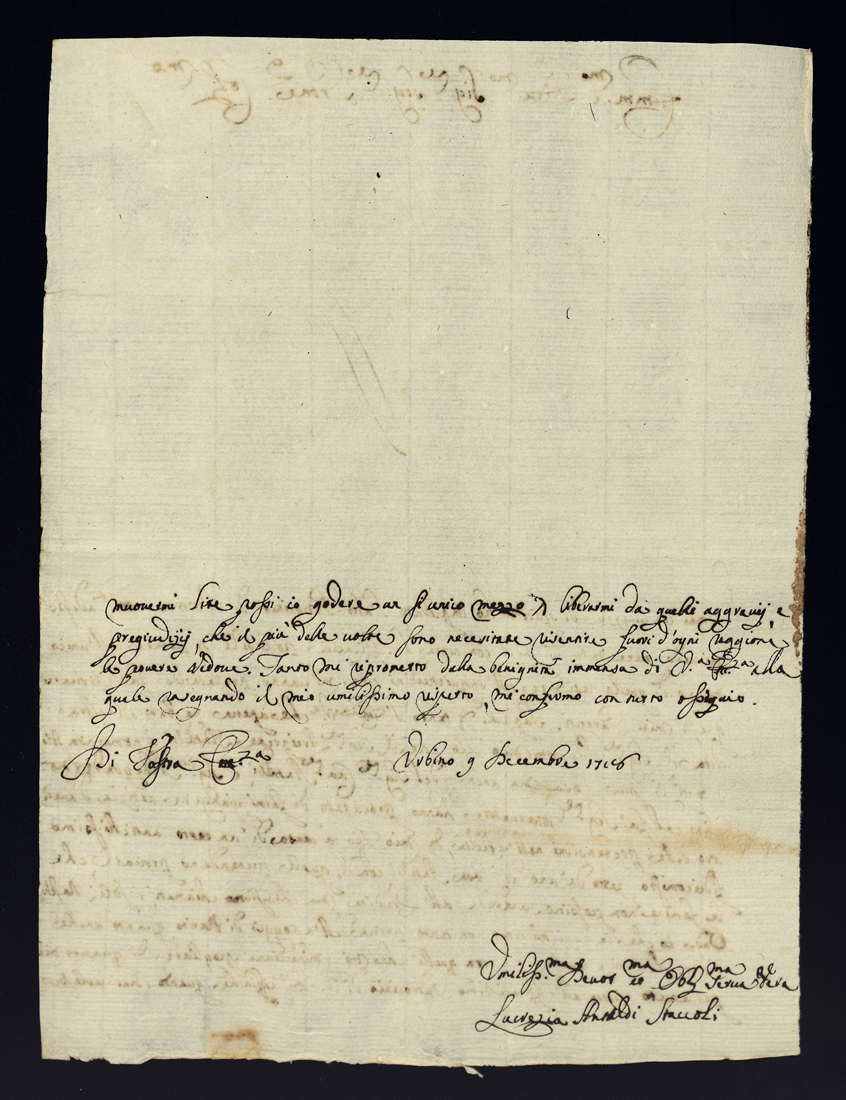 muovermi lite possi io godere un sì unico mezzo p liberarmi da quelli aggravij, e
pregiudizij, che il più delle volte sono necesitate risentire fuori d'ogni raggione
le povere Vedove. Tanto mi riprometto dalla benignità immensa di V.ª Em.za alla
quale rasegnando il mio umilissimo rispetto, mi confirmo con tutto ossequio.
Di Vostra Em.za Urbino 9 Decembre 1716
Umiliss.ma Devot.ma et Obb.ma Serva vera
Lucrezia Ansaldi Staccoli